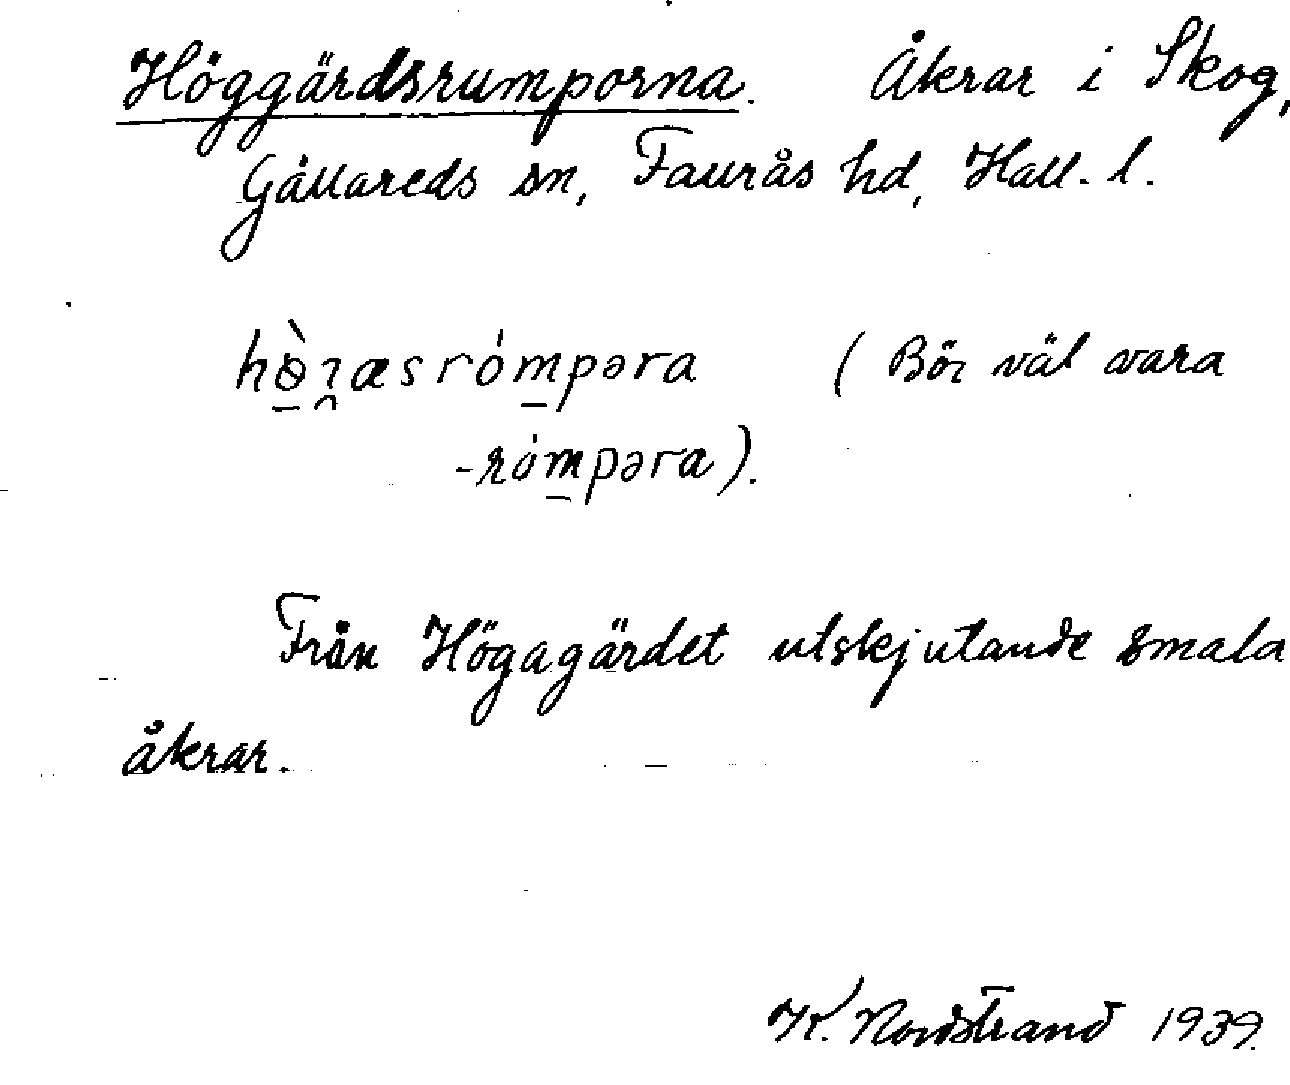 Höggärdsrumporna. Åkrar i Skog,
Gällareds sn, Faurås hd, Hall. l.
hɵ̱̀ɿ̯æsróm̱pəra (Bör väl vara
-róm̱pəra).
Från Högagärdet utskjutande smala
åkrar.
K. Nordstrand 1939.